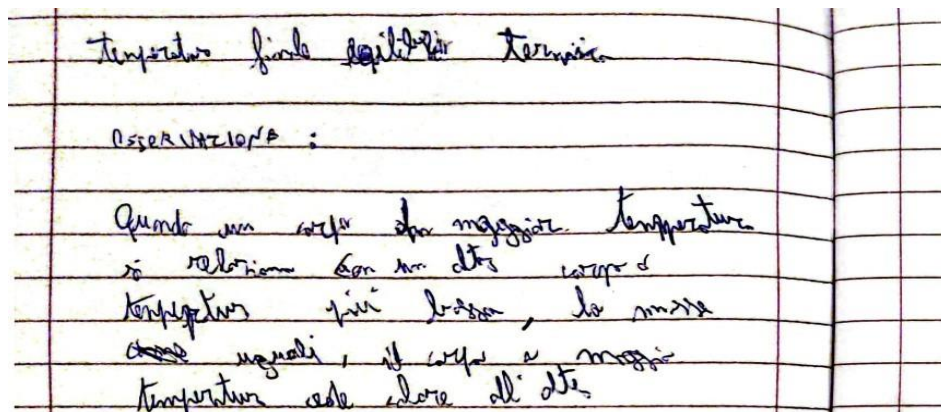 temperatura finale equilibrio termico
OSSERVAZIONE :
Quando un corpo con maggior temperatura
si relaziona con un altro corpo a
temperatura più bassa, la masse
uguali, il corpo a maggior
temperatura cede calore all' altro